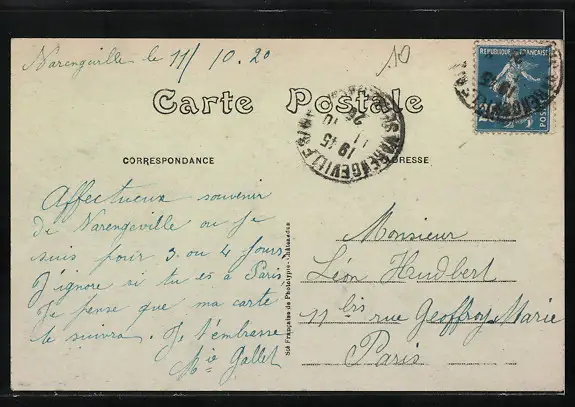 Varengeville le 11/10.20
10
Carte Postale
CORRESPONDANCE
ADRESSE
REPUBLIQUE FRANÇAISE
POSTES
VARENGEVILLE
19 45
11
10
20
Affectueux souvenir
de Varengeville où je
suis pour 3 ou 4 jours,
J'ignore si tu es à Paris,
Je pense que ma carte
te suivra. Je t'embrasse
Mie Gallet
Sté Française de Phototypie
Monsieur
Léon Heudbert
11 bis rue Geoffroy Marie
Paris